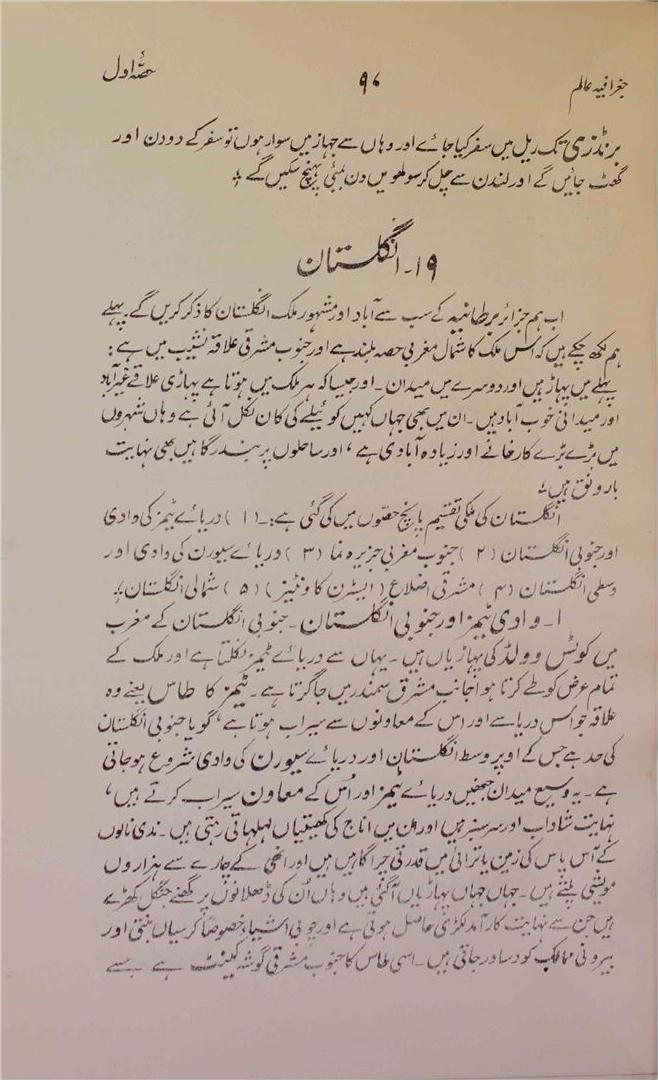 جغرافیہ عالم ۹۰ حصّہ اول
برنڈزی تک ریل میں سفر کیا جائے اور وہاں سے جہاز میں سوار ہوں تو سفر کے دو دن اور
گھٹ جائیں گے اور لندن سے چل کر سولھویں دن بمبئی پہنچ سکیں گے ؛
۱۹۔ انگلستان
اب ہم جزائر برطانیہ کے سب سے آباد اور مشہور ملک انگلستان کا ذکر کریں گے۔ پہلے
ہم لکھ چکے ہیں کہ اس ملک کا شمال مغربی حصہ بلند ہے اور جنوب مشرقی علاقہ نشیب میں ہے :
پہلے میں پہاڑ ہیں اور دوسرے میں میدان۔ اور جیسا کہ ہر ملک میں ہوتا ہے پہاڑی علاقے غیر آباد
اور میدانی خوب آباد ہیں۔ ان میں بھی جہاں کہیں کوئیلے کی کان نکل آئی ہے وہاں شہروں
میں بڑے بڑے کارخانے اور زیادہ آبادی ہے ، اور ساحلوں پر بندرگاہیں بھی نہایت
بارونق ہیں ؛
انگلستان کی ملکی تقسیم پانچ حصّوں میں کی گئی ہے :۔ (۱) دریائے ٹیمز کی وادی
اور جنوبی انگلستان (۲) جنوب مغربی جزیرہ نما (۳) دریائے سیورن کی وادی اور
وسطی انگلستان (۴) مشرقی اضلاع (ایسٹرن کاونٹیز) (۵) شمالی انگلستان ؛
۱۔ وادی ٹیمز اور جنوبی انگلستان۔ جنوبی انگلستان کے مغرب
میں کوٹس وولڈ کی پہاڑیاں ہیں۔ یہاں سے دریائے ٹیمز نکلتا ہے اور ملک کے
تمام عرض کو طے کرتا ہوا جانب مشرق سمندر میں جا گرتا ہے۔ ٹیمز کا طاس یعنے وہ
علاقہ جو اس دریا سے اور اس کے معاونوں سے سیراب ہوتا ہے ، گویا جنوبی انگلستان
کی حد ہے جس کے اوپر وسط انگلستان اور دریائے سیورن کی وادی شروع ہو جاتی
ہے۔ یہ وسیع میدان جنھیں دریائے ٹیمز اور اُس کے معاون سیراب کرتے ہیں ،
نہایت شاداب اور سرسبز ہیں اور ان میں اناج کی کھیتیاں لہلہاتی رہتی ہیں۔ ندی نالوں
کے آس پاس کی زمین یا ترائی میں قدرتی چراگاہیں ہیں اور انھی کے چارے سے ہزاروں
مویشی پلتے ہیں۔ جہاں جہاں پہاڑیاں آگئی ہیں وہاں اُن کی ڈھلانوں پر گھنے جنگل کھڑے
ہیں جن سے نہایت کارآمد لکڑی حاصل ہوتی ہے اور چوبی اشیاء خصوصاً کرسیاں بنتی اور
بیرونی ممالک کو دساور جاتی ہیں۔ اسی طاس کا جنوب مشرقی گوشہ کینٹ ہے جسے